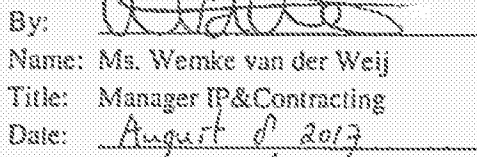 By:
Name: Ms. Wemke van der Weij
Title: Manager IP&Contracting
Date: August 8 2013